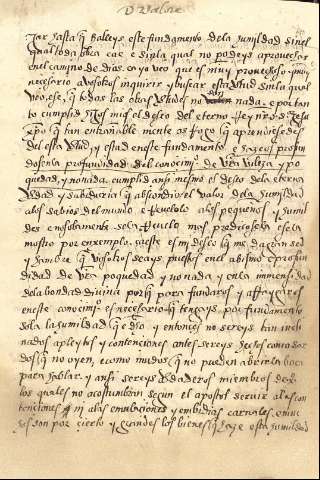 hasta q halleys este fundamento dela humildad sin el
qual toda obra cae e sin la qual no podeys aprovechar
en el camino de dios. ca yo veo que es muy provechoso y muy
necesario a vosotros inquirir y buscar esta
q todas las otras no son nada. e por tan
to cumplid mis el deseo del eterno Rey
q tan entrañable mente os Rogo q aprendiesedes
del esta y estad en este fundamento e
profundidad del conocimi de vra vileza y po
quedad, y nonida. cumplid ansi mesmo el deseo dela eterna
y sabiduria q abscondio el valor dela humildad
alos sabios del mundo e Revelolo alos pequeños y humil
des e no solamente se la Revelo mas predicosela e se la
mostro por exemplo. y este es mi deseo q me da gran sed
y hambre q vosotros seays puestos en el abismo e profun
didad de vra poquedad y no nada y en la immensidad
dela bondad divina porq para fundaros y
en este conocimi es necesario q tengays por fundamento
sola la humildad q e dho. y entonces no sereys tan incli
nados a pleytos y contenciones antes sereys hechos como sor
dos q no oyen, e como mudos q no pueden abrir la boca
para hablar. y ansi sereys verdaderos miembros de
los quales no acostumbran segun el apostol servir alas con
tenciones ni alas emulaciones y embidias carnales.
son por cierto y grandes los bienes q haze esta humildad